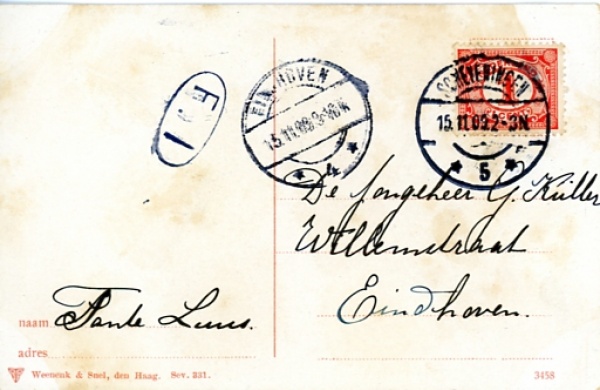 EINDHOVEN
15.11.09.9-10N
4
SCHEVENINGEN
15.11.09.2-3N
5
1
De Jongeheer G. Küller
Willemstraat
Eindhoven.
naam Tante Luus.
adres
Weenenk & Snel, den Haag. Sev. 231.
3458